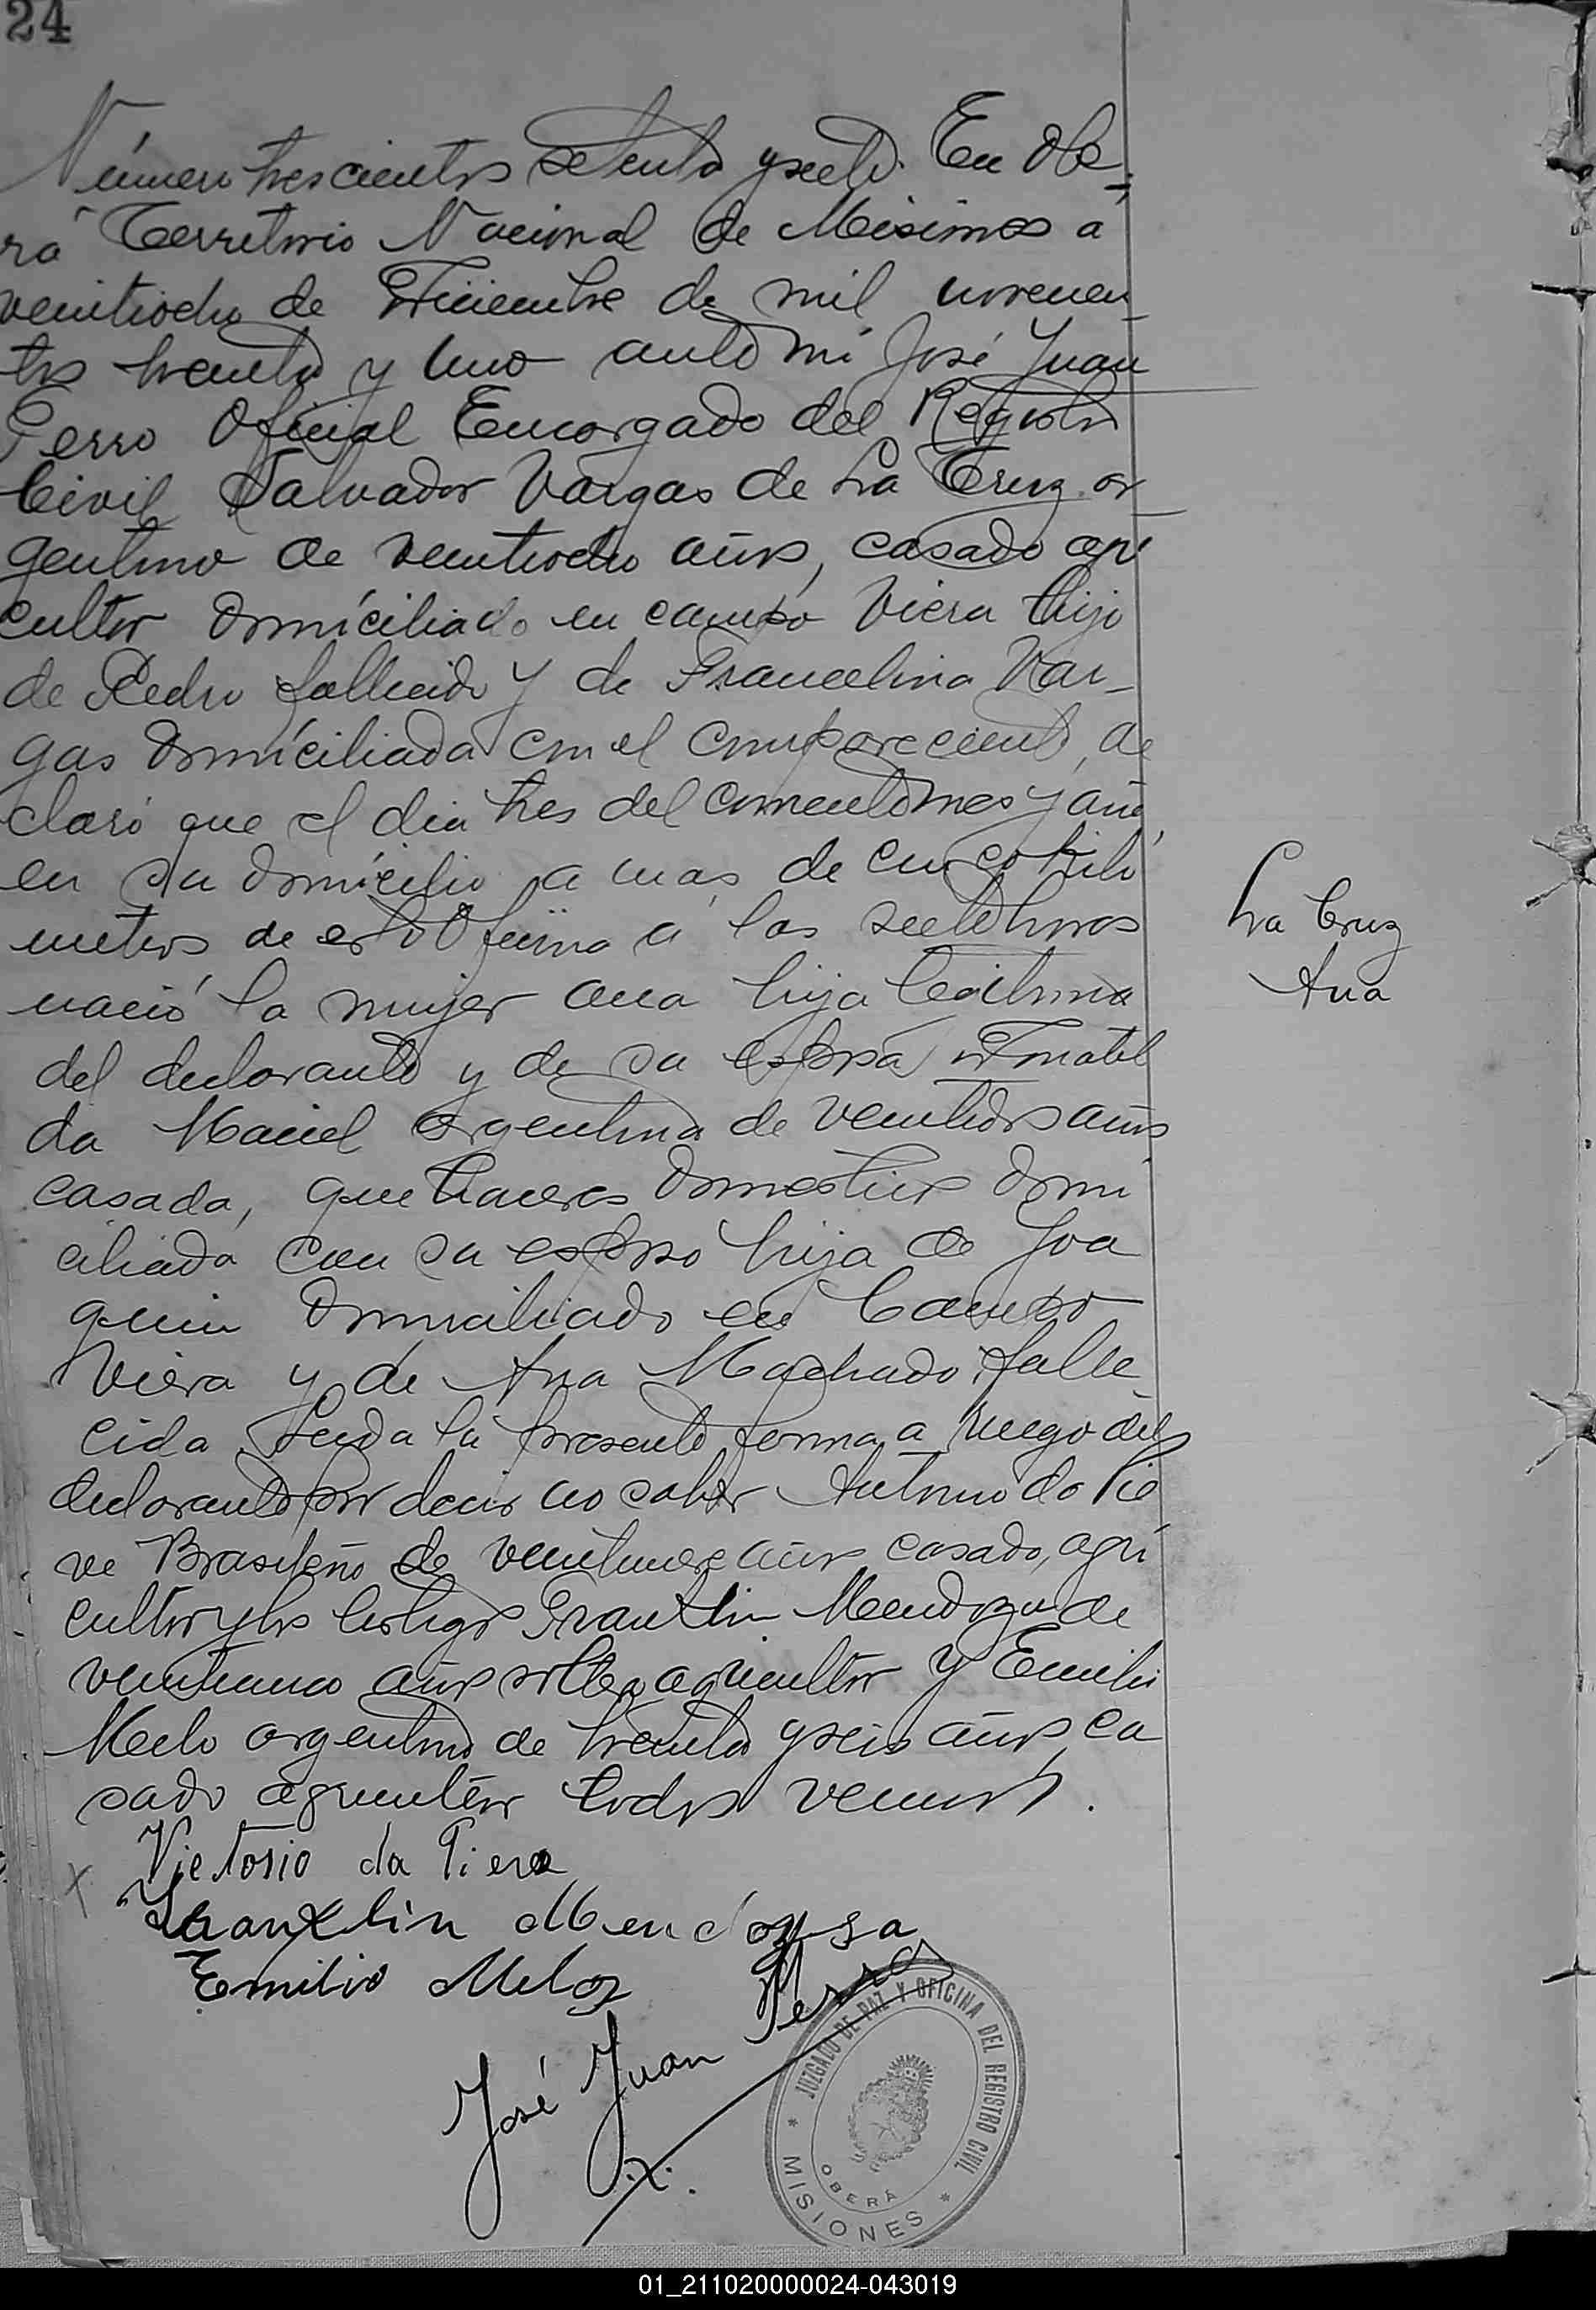 24
Número trescientos setenta y siete. En Obe-
rá Territorio Nacional de Misiones a
veintiocho de Diciembre de mil novecien-
tos treinta y uno ante mi José Juan
Perro Oficial Encargado del Registro
Civil Salvador Vargas de La Cruz ar-
gentino de veintiocho años, casado agri
cultor domiciliado en campo Viera hijo
de Pedro fallecido y de Francelina Var-
gas domiciliada con el compareciente, de
claró que el dia tres del corriente mes y año
en su domicilio a mas de cinco kiló
metros de esta Oficina a las siete horas
nació la mujer Ana hija legitima
del declarante y de su esposa
da Maciel argentina de veintidos años
casada, que haceres domesticos domi
ciliada con su esposo hija de Joa
quin domiciliado en Campo
Viera y de Ana Machado falle
cida Leida la presente firma a ruego del
declarante por decir no saber Antonio da Pie
ve Brasileño de veintinueve años casado, agri
cultor y los testigos Franklin Mendoza de
años soltero agricultor y Emilio
Melo argentino de treinta y seis años ca
sado agricultor todos vecinos.
La Cruz
Ana
Victorio da Piera
Franklin Mendoza
Emilio Melo
José Juan Perro
JUZGADO DE PAZ Y OFICINA DEL REGISTRO CIVIL
OBERÁ
* MISIONES *
01_211020000024-043019